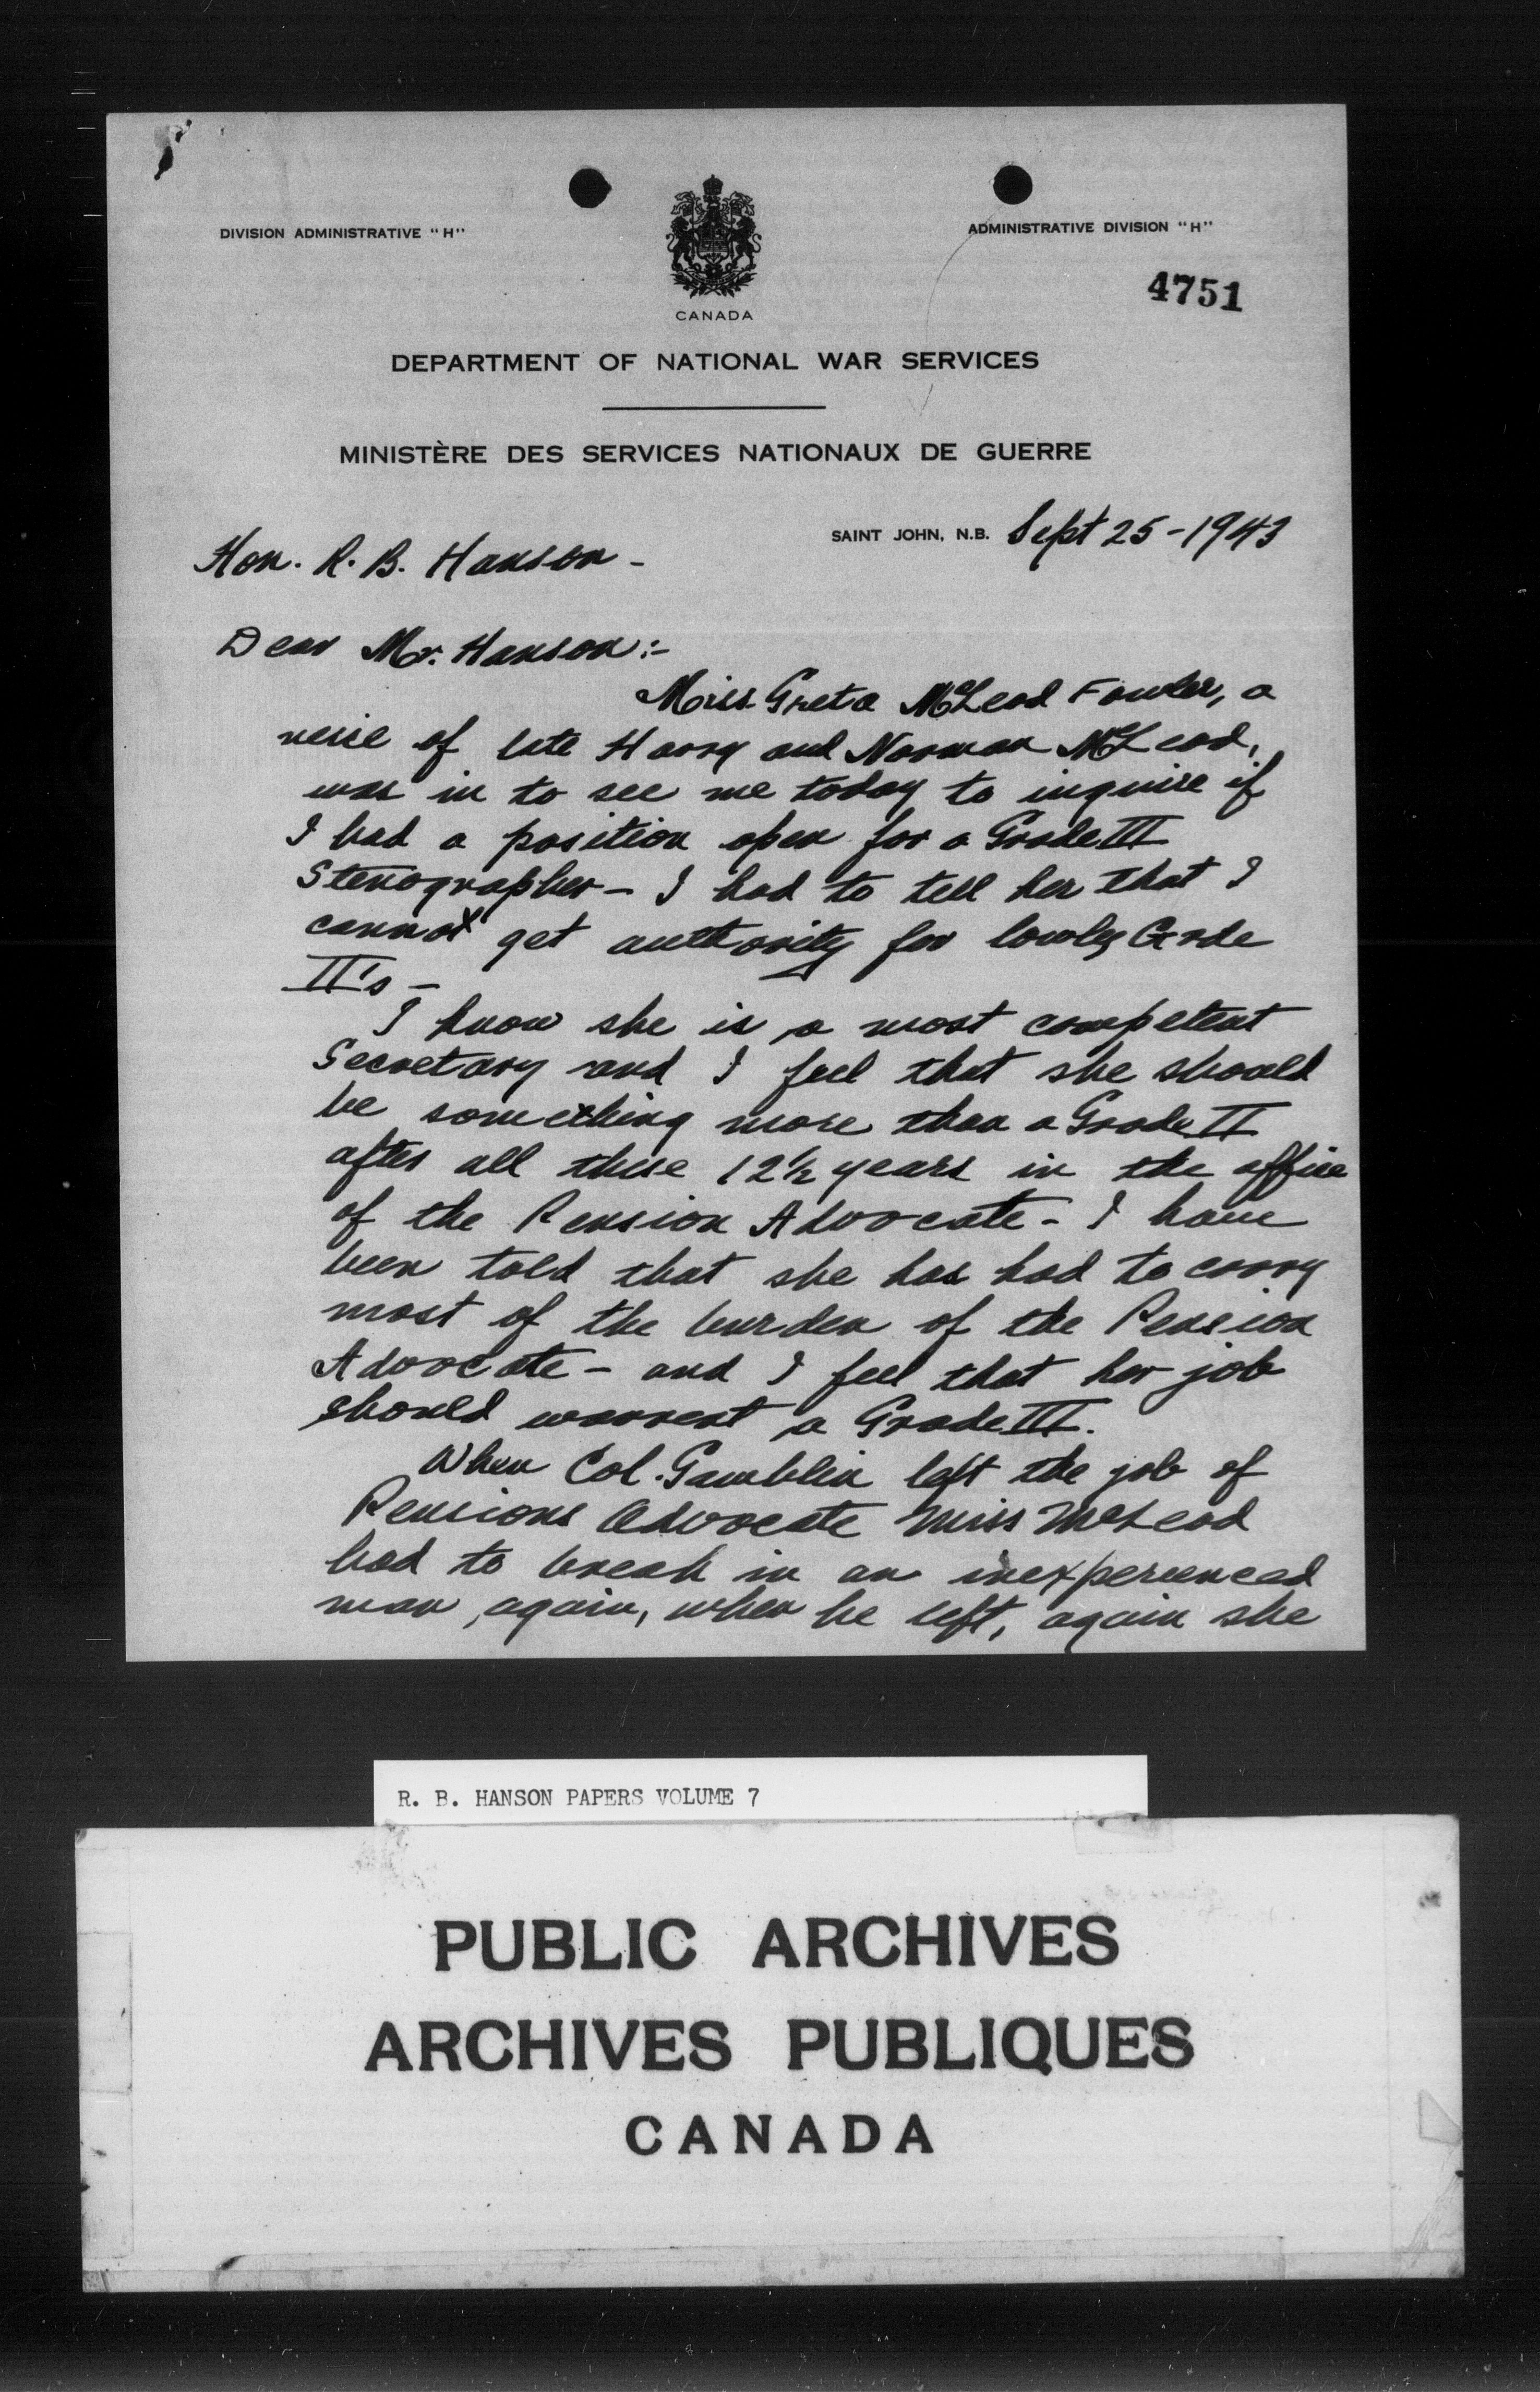 DIVISION ADMINISTRATIVE "H"
ADMINISTRATIVE DIVISION "H"
CANADA
4751
DEPARTMENT OF NATIONAL WAR SERVICES
MINISTÈRE DES SERVICES NATIONAUX DE GUERRE
SAINT JOHN, N.B. Sept 25-1943
Hon. R. B. Hanson -
Dear Mr. Hanson:-
Miss Greta McLeod Fowler, a
neice of late Harry and Norman McLeod,
was in to see me today to inquire if
I had a position open for a Grade III
Stenographer - I had to tell her that I
cannot get authority for lowly Grade
II's -
I know she is a most competent
Secretary and I feel that she should
be something more than a Grade II
after all these 12½ years in the office
of the Pension Advocate - I have
been told that she has had to carry
most of the burden of the Pension
Advocate - and I feel that her job
should warrent a Grade III.
When Col. Gamblin left the job of
Pensions Advocate Miss McLeod
had to break in an inexperienced
man, again, when he left, again she
R. B. HANSON PAPERS VOLUME 7
PUBLIC ARCHIVES
ARCHIVES PUBLIQUES
CANADA